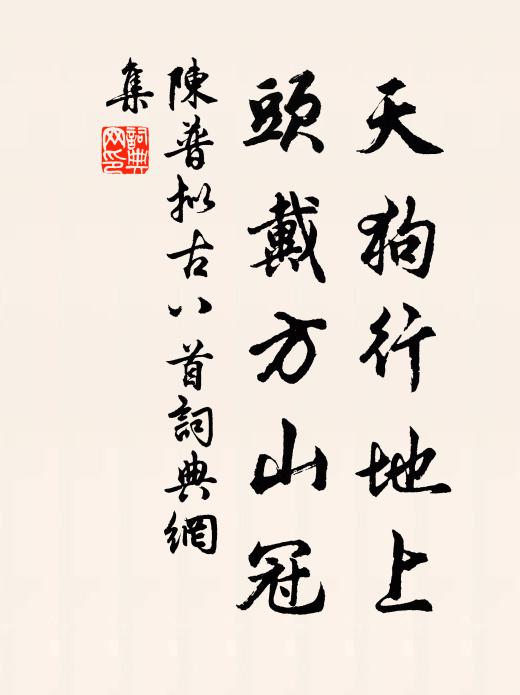 天狗行地上
頭戴方山冠
陳普擬古八首詞典網
集
詞典網印